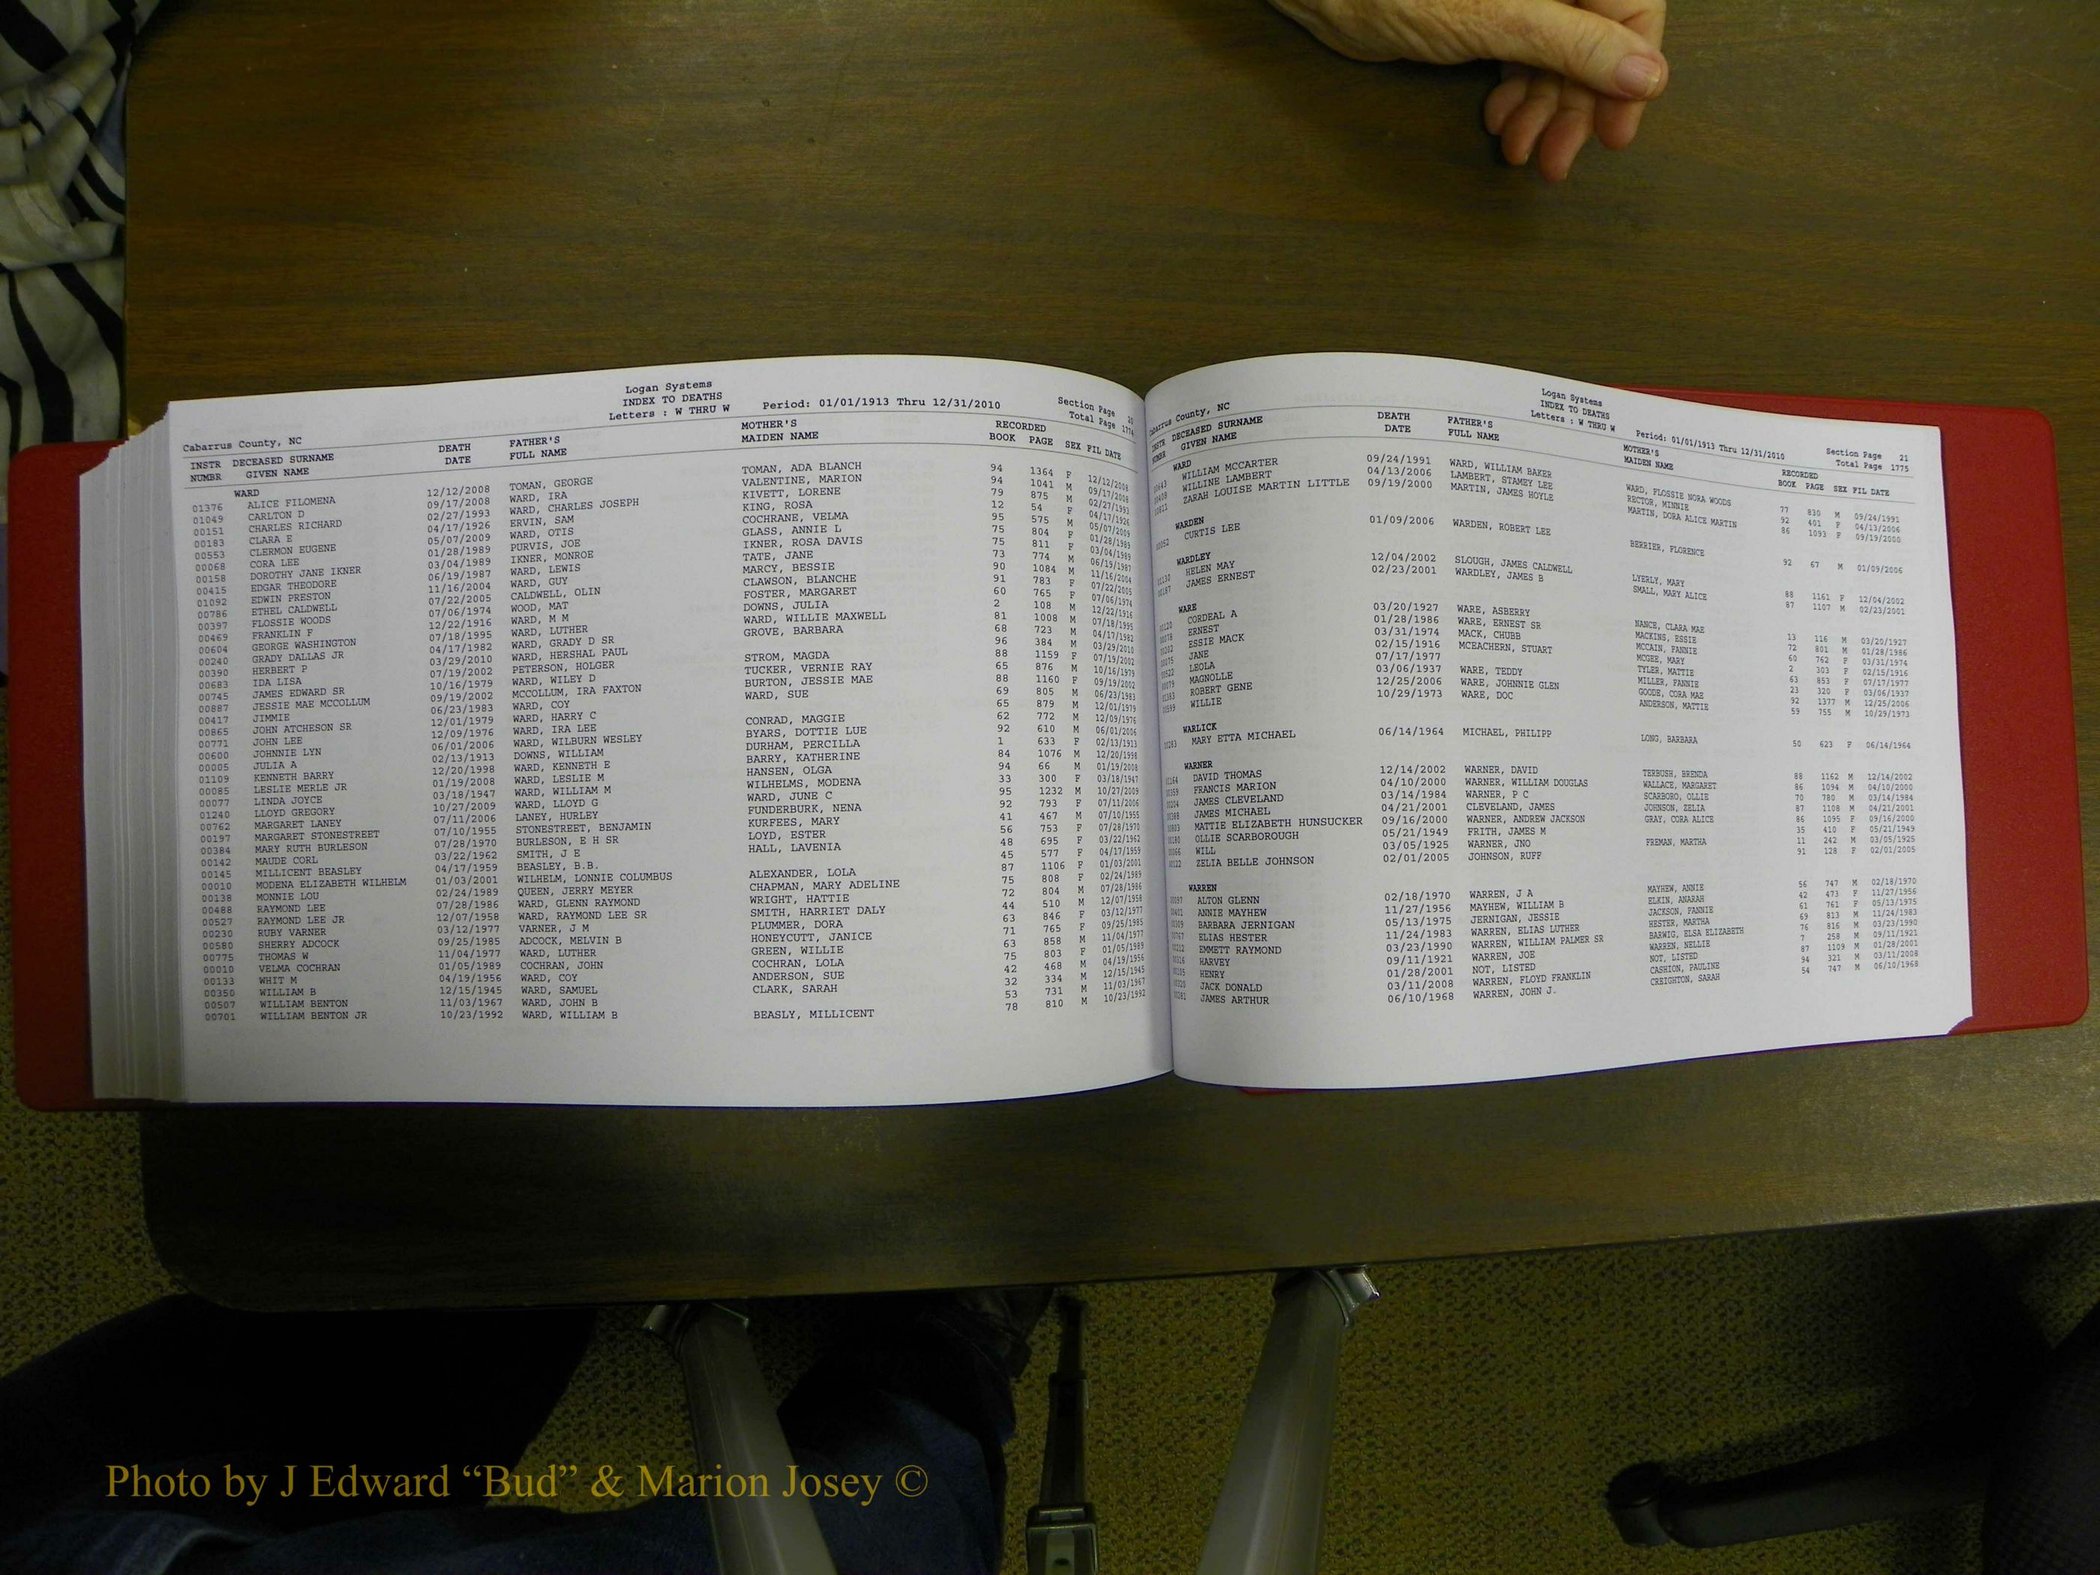 Logan Systems
INDEX TO DEATHS
Letters : W THRU W Period: 01/01/1913 Thru 12/31/2010
Section Page 20
Total Page 1774
Cabarrus County, NC
INSTR DECEASED SURNAME DEATH FATHER'S MOTHER'S RECORDED
NUMBR GIVEN NAME DATE FULL NAME MAIDEN NAME BOOK PAGE SEX FIL DATE
WARD
01376 ALICE FILOMENA 12/12/2008 TOMAN, GEORGE TOMAN, ADA BLANCH 94 1364 F 12/12/2008
01049 CARLTON D 09/17/2008 WARD, IRA VALENTINE, MARION 94 1041 M 09/17/2008
00151 CHARLES RICHARD 02/27/1993 WARD, CHARLES JOSEPH KIVETT, LORENE 79 875 M 02/27/1993
00183 CLARA E 04/17/1926 ERVIN, SAM KING, ROSA 12 54 F 04/17/1926
00553 CLERMON EUGENE 05/07/2009 WARD, OTIS COCHRANE, VELMA 95 575 M 05/07/2009
00068 CORA LEE 01/28/1989 PURVIS, JOE GLASS, ANNIE L 75 804 F 01/28/1989
00158 DOROTHY JANE IKNER 03/04/1989 IKNER, MONROE IKNER, ROSA DAVIS 75 811 F 03/04/1989
00415 EDGAR THEODORE 06/19/1987 WARD, LEWIS TATE, JANE 73 774 M 06/19/1987
01092 EDWIN PRESTON 11/16/2004 WARD, GUY MARCY, BESSIE 90 1084 M 11/16/2004
00786 ETHEL CALDWELL 07/22/2005 CALDWELL, OLIN CLAWSON, BLANCHE 91 783 F 07/22/2005
00397 FLOSSIE WOODS 07/06/1974 WOOD, MAT FOSTER, MARGARET 60 765 F 07/06/1974
00469 FRANKLIN F 12/22/1916 WARD, M M DOWNS, JULIA 2 108 M 12/22/1916
00604 GEORGE WASHINGTON 07/18/1995 WARD, LUTHER WARD, WILLIE MAXWELL 81 1008 M 07/18/1995
00240 GRADY DALLAS JR 04/17/1982 WARD, GRADY D SR GROVE, BARBARA 68 723 M 04/17/1982
00390 HERBERT P 03/29/2010 WARD, HERSHAL PAUL 96 384 M 03/29/2010
00683 IDA LISA 07/19/2002 PETERSON, HOLGER STROM, MAGDA 88 1159 F 07/19/2002
00745 JAMES EDWARD SR 10/16/1979 WARD, WILEY D TUCKER, VERNIE RAY 65 876 M 10/16/1979
00887 JESSIE MAE MCCOLLUM 09/19/2002 MCCOLLUM, IRA FAXTON BURTON, JESSIE MAE 88 1160 F 09/19/2002
00417 JIMMIE 06/23/1983 WARD, COY WARD, SUE 69 805 M 06/23/1983
00865 JOHN ATCHESON SR 12/01/1979 WARD, HARRY C 65 879 M 12/01/1979
00771 JOHN LEE 12/09/1976 WARD, IRA LEE CONRAD, MAGGIE 62 772 M 12/09/1976
00600 JOHNNIE LYN 06/01/2006 WARD, WILBURN WESLEY BYARS, DOTTIE LUE 92 610 M 06/01/2006
00005 JULIA A 02/13/1913 DOWNS, WILLIAM DURHAM, PERCILLA 1 633 F 02/13/1913
01109 KENNETH BARRY 12/20/1998 WARD, KENNETH E BARRY, KATHERINE 84 1076 M 12/20/1998
00085 LESLIE MERLE JR 01/19/2008 WARD, LESLIE M HANSEN, OLGA 94 66 M 01/19/2008
00077 LINDA JOYCE 03/18/1947 WARD, WILLIAM M WILHELMS, MODENA 33 300 F 03/18/1947
01240 LLOYD GREGORY 10/27/2009 WARD, LLOYD G WARD, JUNE C 95 1232 M 10/27/2009
00762 MARGARET LANEY 07/11/2006 LANEY, HURLEY FUNDERBURK, NENA 92 793 F 07/11/2006
00197 MARGARET STONESTREET 07/10/1955 STONESTREET, BENJAMIN KURFEES, MARY 41 467 M 07/10/1955
00384 MARY RUTH BURLESON 07/28/1970 BURLESON, E H SR LOYD, ESTER 56 753 F 07/28/1970
00142 MAUDE CORL 03/22/1962 SMITH, J E HALL, LAVENIA 48 695 F 03/22/1962
00145 MILLICENT BEASLEY 04/17/1959 BEASLEY, B.B. 45 577 F 04/17/1959
00010 MODENA ELIZABETH WILHELM 01/03/2001 WILHELM, LONNIE COLUMBUS ALEXANDER, LOLA 87 1106 F 01/03/2001
00138 MONNIE LOU 02/24/1989 QUEEN, JERRY MEYER CHAPMAN, MARY ADELINE 75 808 F 02/24/1989
00488 RAYMOND LEE 07/28/1986 WARD, GLENN RAYMOND WRIGHT, HATTIE 72 804 M 07/28/1986
00527 RAYMOND LEE JR 12/07/1958 WARD, RAYMOND LEE SR SMITH, HARRIET DALY 44 510 M 12/07/1958
00230 RUBY VARNER 03/12/1977 VARNER, J M PLUMMER, DORA 63 846 F 03/12/1977
00580 SHERRY ADCOCK 09/25/1985 ADCOCK, MELVIN B HONEYCUTT, JANICE 71 765 F 09/25/1985
00775 THOMAS W 11/04/1977 WARD, LUTHER GREEN, WILLIE 63 858 M 11/04/1977
00010 VELMA COCHRAN 01/05/1989 COCHRAN, JOHN COCHRAN, LOLA 75 803 F 01/05/1989
00133 WHIT M 04/19/1956 WARD, COY ANDERSON, SUE 42 468 M 04/19/1956
00350 WILLIAM B 12/15/1945 WARD, SAMUEL CLARK, SARAH 32 334 M 12/15/1945
00507 WILLIAM BENTON 11/03/1967 WARD, JOHN B 53 731 M 11/03/1967
00701 WILLIAM BENTON JR 10/23/1992 WARD, WILLIAM B BEASLY, MILLICENT 78 810 M 10/23/1992
Logan Systems
INDEX TO DEATHS
Letters : W THRU W Period: 01/01/1913 Thru 12/31/2010
Section Page 21
Total Page 1775
Cabarrus County, NC
INSTR DECEASED SURNAME DEATH FATHER'S MOTHER'S RECORDED
NUMBR GIVEN NAME DATE FULL NAME MAIDEN NAME BOOK PAGE SEX FIL DATE
WARD
00643 WILLIAM MCCARTER 09/24/1991 WARD, WILLIAM BAKER WARD, FLOSSIE NORA WOODS 77 830 M 09/24/1991
00408 WILLINE LAMBERT 04/13/2006 LAMBERT, STAMEY LEE RECTOR, MINNIE 92 401 F 04/13/2006
00811 ZARAH LOUISE MARTIN LITTLE 09/19/2000 MARTIN, JAMES HOYLE MARTIN, DORA ALICE MARTIN 86 1093 F 09/19/2000
WARDEN
00052 CURTIS LEE 01/09/2006 WARDEN, ROBERT LEE BERRIER, FLORENCE 92 67 M 01/09/2006
WARDLEY
01130 HELEN MAY 12/04/2002 SLOUGH, JAMES CALDWELL LYERLY, MARY 88 1161 F 12/04/2002
00187 JAMES ERNEST 02/23/2001 WARDLEY, JAMES B SMALL, MARY ALICE 87 1107 M 02/23/2001
WARE
00120 CORDEAL A 03/20/1927 WARE, ASBERRY NANCE, CLARA MAE 13 116 M 03/20/1927
00078 ERNEST 01/28/1986 WARE, ERNEST SR MACKINS, ESSIE 72 801 M 01/28/1986
00202 ESSIE MACK 03/31/1974 MACK, CHUBB MCCAIN, FANNIE 60 762 F 03/31/1974
00075 JANE 02/15/1916 MCEACHERN, STUART MCGEE, MARY 2 303 F 02/15/1916
00522 LEOLA 07/17/1977 TYLER, MATTIE 63 853 F 07/17/1977
00079 MAGNOLLE 03/06/1937 WARE, TEDDY MILLER, FANNIE 23 320 F 03/06/1937
01383 ROBERT GENE 12/25/2006 WARE, JOHNNIE GLEN GOODE, CORA MAE 92 1377 M 12/25/2006
00599 WILLIE 10/29/1973 WARE, DOC ANDERSON, MATTIE 59 755 M 10/29/1973
WARLICK
00283 MARY ETTA MICHAEL 06/14/1964 MICHAEL, PHILIPP LONG, BARBARA 50 623 F 06/14/1964
WARNER
01164 DAVID THOMAS 12/14/2002 WARNER, DAVID TERBUSH, BRENDA 88 1162 M 12/14/2002
00359 FRANCIS MARION 04/10/2000 WARNER, WILLIAM DOUGLAS WALLACE, MARGARET 86 1094 M 04/10/2000
00204 JAMES CLEVELAND 03/14/1984 WARNER, P C SCARBORO, OLLIE 70 780 M 03/14/1984
00388 JAMES MICHAEL 04/21/2001 CLEVELAND, JAMES JOHNSON, ZELIA 87 1108 M 04/21/2001
00803 MATTIE ELIZABETH HUNSUCKER 09/16/2000 WARNER, ANDREW JACKSON GRAY, CORA ALICE 86 1095 F 09/16/2000
00180 OLLIE SCARBOROUGH 05/21/1949 FRITH, JAMES M 35 410 F 05/21/1949
00066 WILL 03/05/1925 WARNER, JNO FREMAN, MARTHA 11 242 M 03/05/1925
00122 ZELIA BELLE JOHNSON 02/01/2005 JOHNSON, RUFF 91 128 F 02/01/2005
WARREN
00097 ALTON GLENN 02/18/1970 WARREN, J A MAYHEW, ANNIE 56 747 M 02/18/1970
00401 ANNIE MAYHEW 11/27/1956 MAYHEW, WILLIAM B ELKIN, ANARAH 42 473 F 11/27/1956
00309 BARBARA JERNIGAN 05/13/1975 JERNIGAN, JESSIE JACKSON, FANNIE 61 761 F 05/13/1975
00767 ELIAS HESTER 11/24/1983 WARREN, ELIAS LUTHER HESTER, MARTHA 69 813 M 11/24/1983
00212 EMMETT RAYMOND 03/23/1990 WARREN, WILLIAM PALMER SR BARWIG, ELSA ELIZABETH 76 816 M 03/23/1990
00326 HARVEY 09/11/1921 WARREN, JOE WARREN, NELLIE 7 258 M 09/11/1921
00105 HENRY 01/28/2001 NOT, LISTED NOT, LISTED 87 1109 M 01/28/2001
00320 JACK DONALD 03/11/2008 WARREN, FLOYD FRANKLIN CASHION, PAULINE 94 321 M 03/11/2008
00281 JAMES ARTHUR 06/10/1968 WARREN, JOHN J. CREIGHTON, SARAH 54 747 M 06/10/1968
Photo by J Edward “Bud” & Marion Josey ©